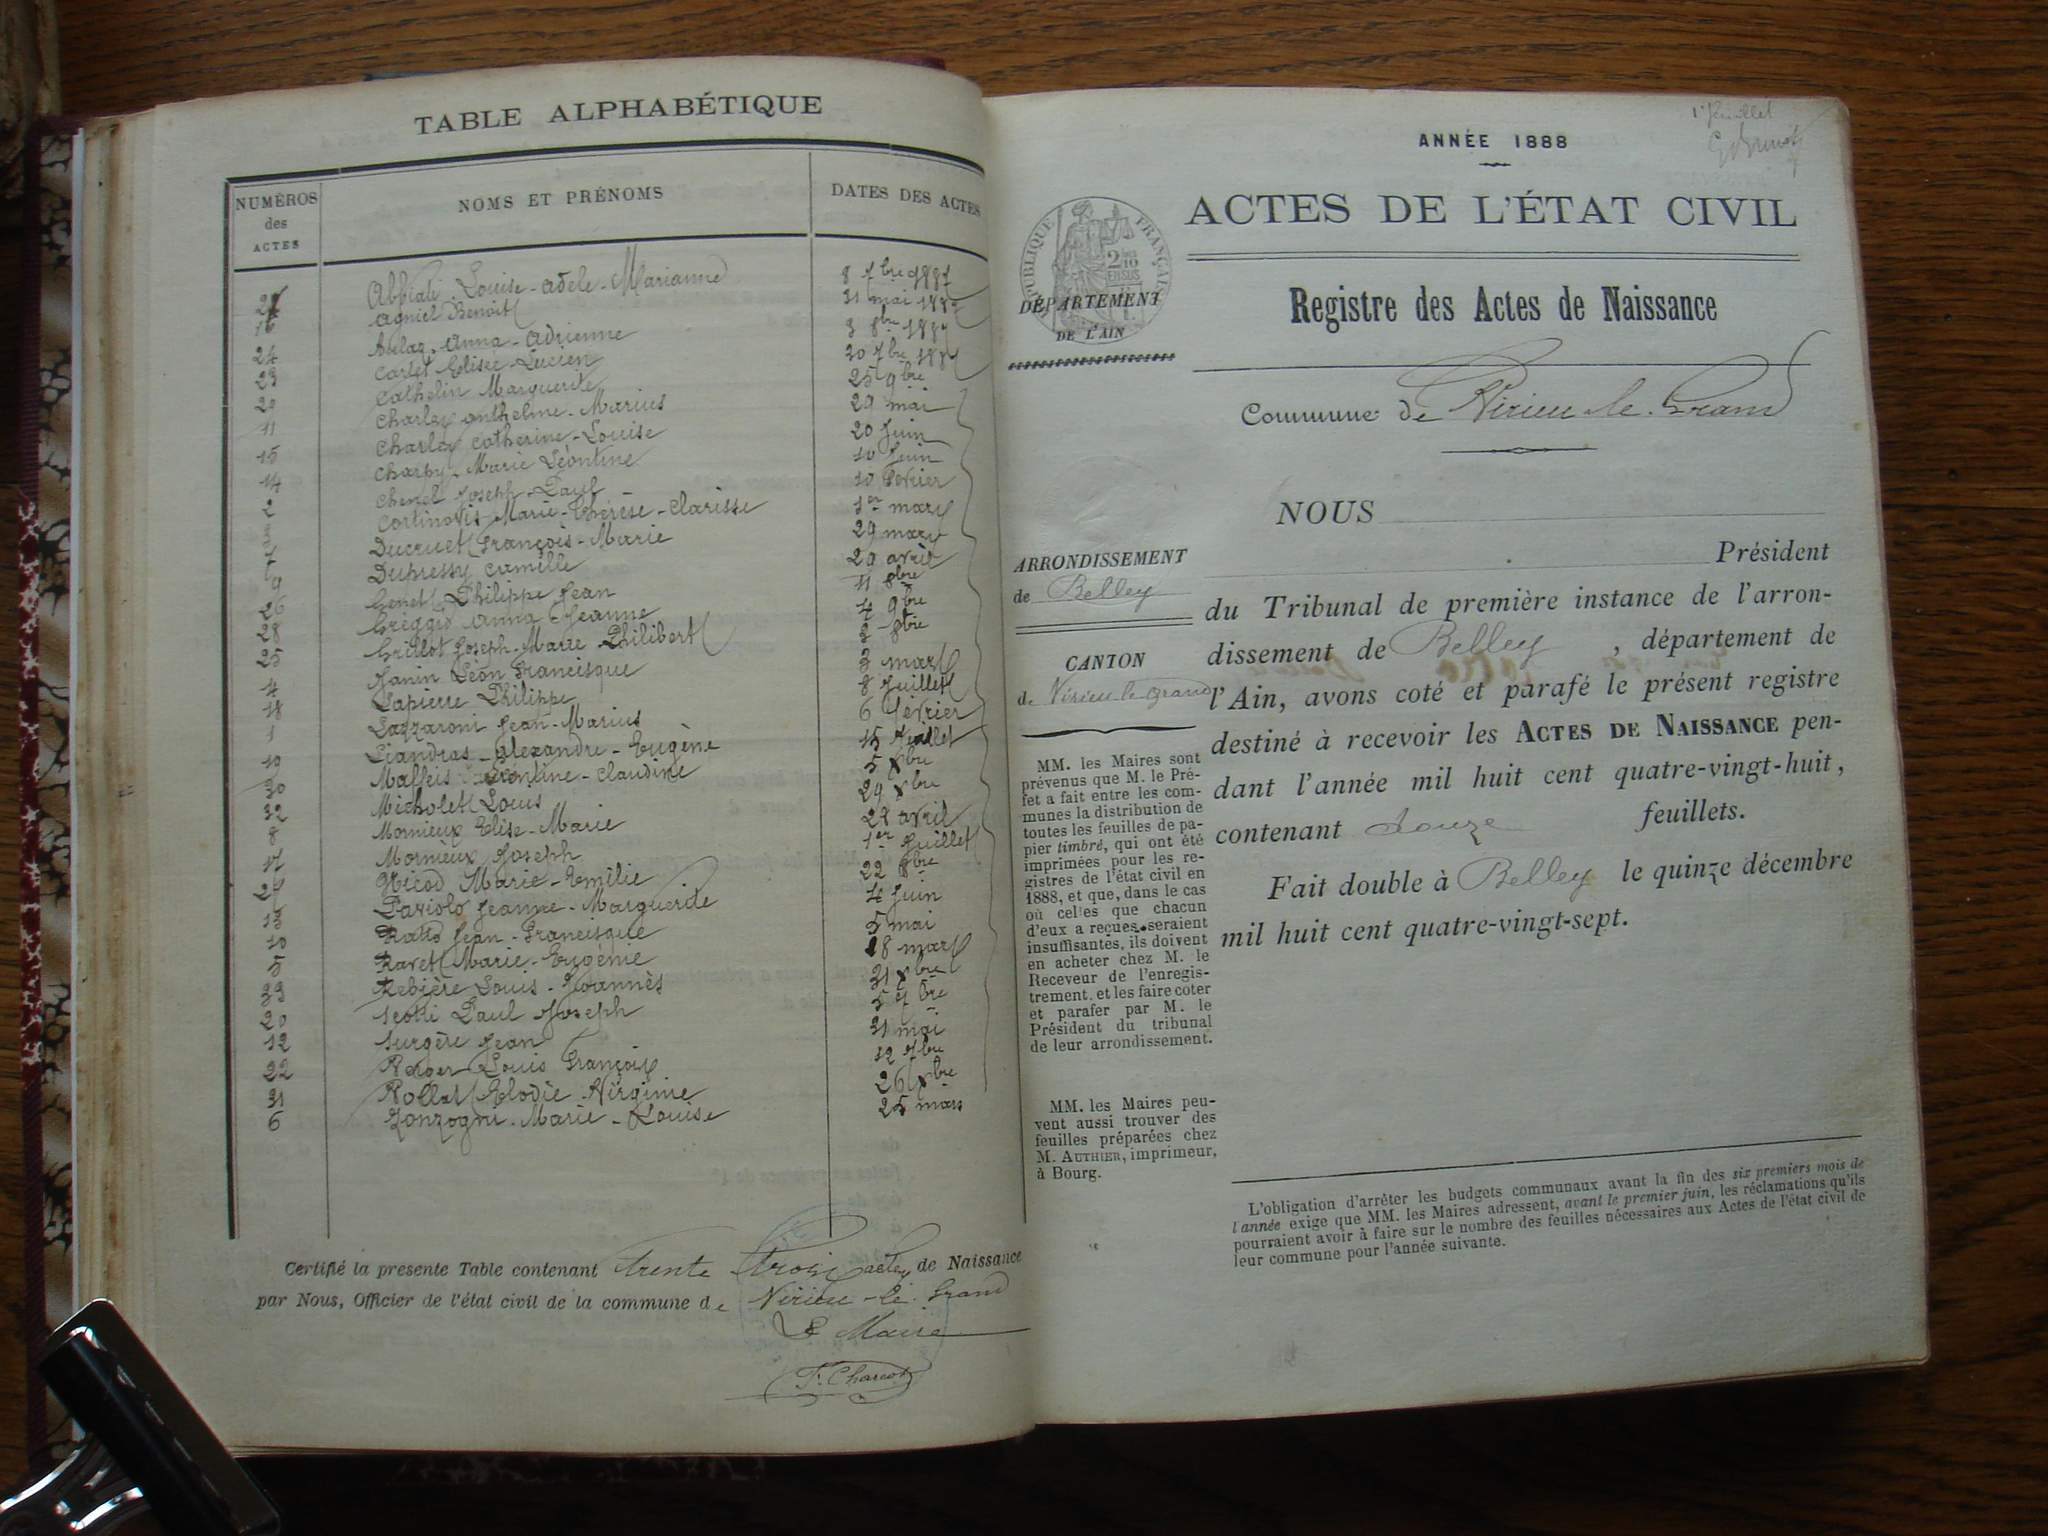 TABLE ALPHABÉTIQUE
NUMÉROS des ACTES
NOMS ET PRÉNOMS
DATES DES ACTES
Louise-Adèle-Marianne 8 7bre 1887
Agniel Benoit 31 mai 1887
Anna-Adrienne 3 8bre 1887
24 Carlet Elisée-Lucien 30 7bre 1887
23 Cathelin Marguerite 25 9bre
29 Charley Anthelme-Marius 29 mai
11 Charley Catherine-Louise 20 Juin
15 Charpy Marie Léontine 10 Juin
14 Chenel Joseph-Paul 10 février
2 Cortinovis Marie-Thérèse-Clarisse 1er mars
Ducruet François-Marie 29 mars
7 Dupressy Camille 29 avril
9 Genet Philippe Jean 11 8bre
26 Greggio Anna Jeanne 4 9bre
28 Grillot Joseph-Marie Philibert 3 8bre
25 Janin Léon Francisque 3 mars
4 Lapierre Philippe 8 Juillet
18 Lazzaroni Jean-Marius 6 février
1 Liandras Alexandre-Eugène 15 Juillet
Maffeis Claudine 5 Xbre
30 Micholet Louis 29 Xbre
32 Mornieux Elise-Marie 28 avril
8 Mornieux Joseph 1er Juillet
17 Nicod Marie-Emilie 22 8bre
27 Paviolo Jeanne-Marguerite 4 Juin
13 Ratto Jean-Francisque 5 mai
10 Ravet Marie-Eugénie 18 mars
5 Rebière Louis-Joannès 31 Xbre
33 Scotti Paul Joseph 5 7bre
20 Surgère Jean 31 mai
12 Louis François 12 7bre
22 Rollat Elodie Virginie 26 Xbre
31 Zonzogni-Marie-Louise 25 mars
6
Certifié la présente Table contenant trente trois actes de Naissance
par Nous, Officier de l'état civil de la commune de Virieu-le-Grand
Le Maire
F. Charcot
1er feuillet
ANNÉE 1888
ACTES DE L'ÉTAT CIVIL
RÉPUBLIQUE FRANÇAISE
2/10 EN SUS
DÉPARTEMENT
DE L'AIN
Registre des Actes de Naissance
Commune de Virieu-le-Grand
NOUS
Président
ARRONDISSEMENT
de Belley
du Tribunal de première instance de l'arron-
dissement de Belley, département de
CANTON
de Virieu-le-Grand
l'Ain, avons coté et parafé le présent registre
destiné à recevoir les ACTES DE NAISSANCE pen-
dant l'année mil huit cent quatre-vingt-huit,
contenant douze feuillets.
Fait double à Belley le quinze décembre
mil huit cent quatre-vingt-sept.
MM. les Maires sont
prévenus que M. le Pré-
fet a fait entre les com-
munes la distribution de
toutes les feuilles de pa-
pier timbré, qui ont été
imprimées pour les re-
gistres de l'état civil en
1888, et que, dans le cas
où celles que chacun
d'eux a reçues seraient
insuffisantes, ils doivent
en acheter chez M. le
Receveur de l'enregis-
trement, et les faire coter
et parafer par M. le
Président du tribunal
de leur arrondissement.
MM. les Maires peu-
vent aussi trouver des
feuilles préparées chez
M. AUTHIER, imprimeur,
à Bourg.
L'obligation d'arrêter les budgets communaux avant la fin des six premiers mois de
l'année exige que MM. les Maires adressent, avant le premier juin, les réclamations qu'ils
pourraient avoir à faire sur le nombre des feuilles nécessaires aux Actes de l'état civil de
leur commune pour l'année suivante.